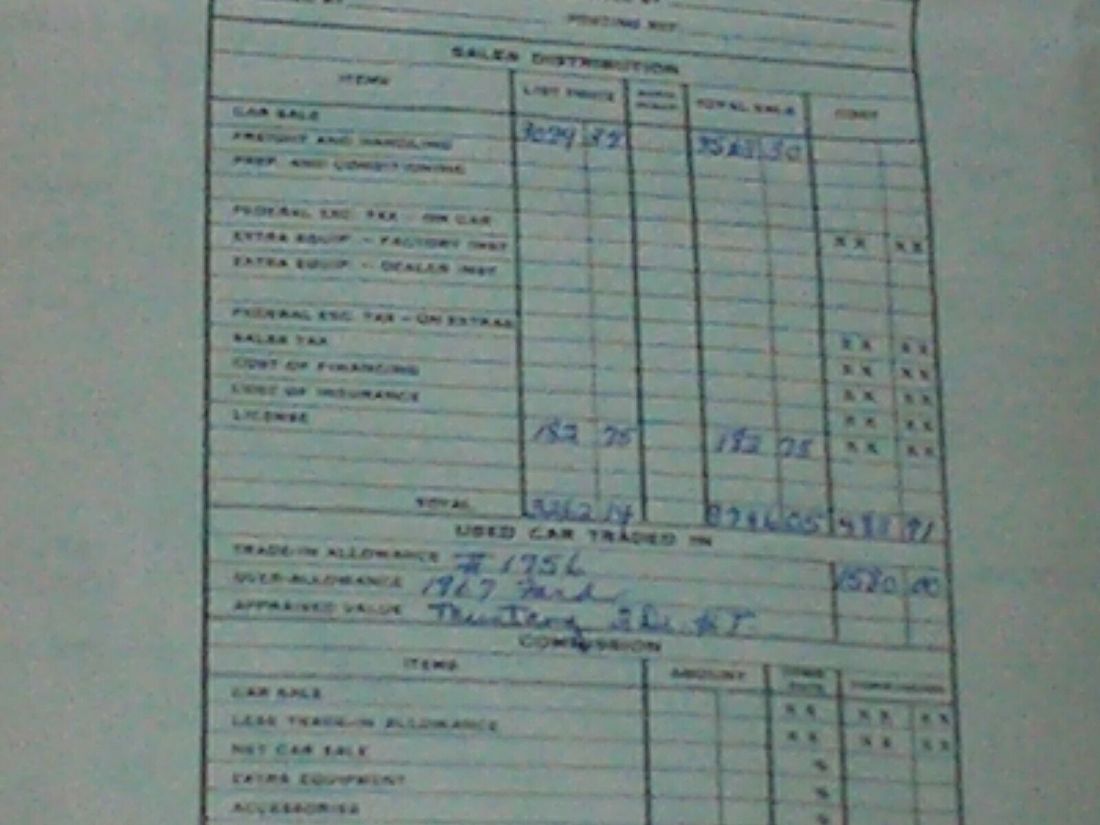 POSTING REF.
SALES DISTRIBUTION
ITEMS LIST PRICE TOTAL SALE COST
CAR SALE
FREIGHT AND HANDLING 3079 39 3563 30
PREP. AND CONDITIONING
FEDERAL EXC. TAX - ON CAR
EXTRA EQUIP. - FACTORY INST. XX XX
EXTRA EQUIP. - DEALER INST.
FEDERAL EXC. TAX - ON EXTRAS
SALES TAX XX XX
COST OF FINANCING XX XX
COST OF INSURANCE XX XX
LICENSE XX XX
182 75 182 75 XX XX
TOTAL 3262 14 3746 05 483 91
USED CAR TRADED IN
TRADE-IN ALLOWANCE # 1756 1580 00
OVER-ALLOWANCE 1967 Ford
APPRAISED VALUE Mustang 2 Dr. HT
COMMISSION
ITEMS AMOUNT
CAR SALE XX XX XX
LESS TRADE-IN ALLOWANCE XX XX XX
NET CAR SALE %
EXTRA EQUIPMENT %
ACCESSORIES %